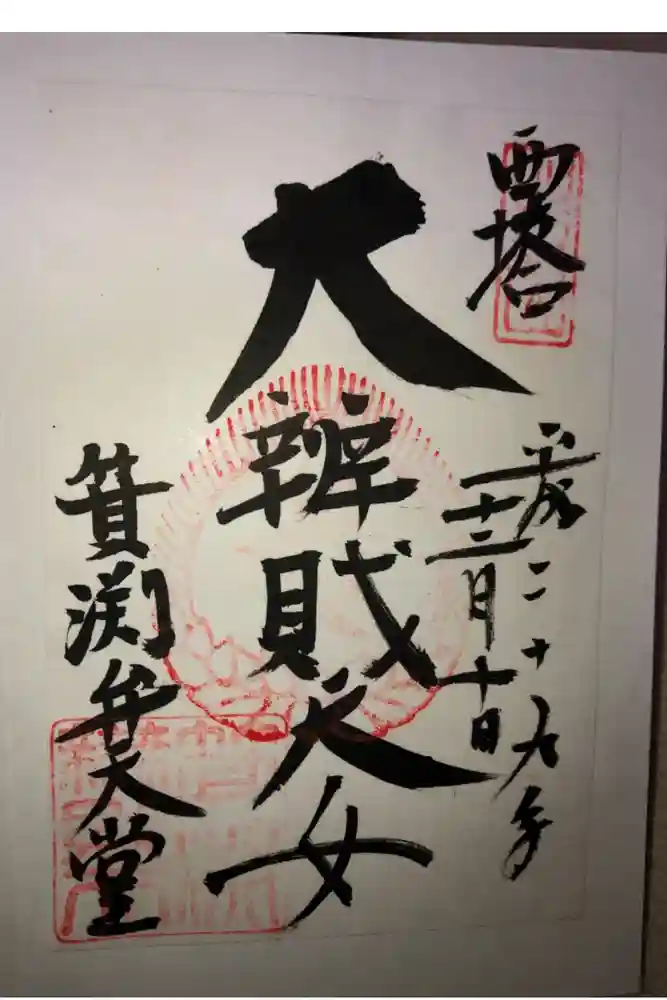 西塔
平成二十九年
十二月十日
大辨財天女
箕渕弁天堂